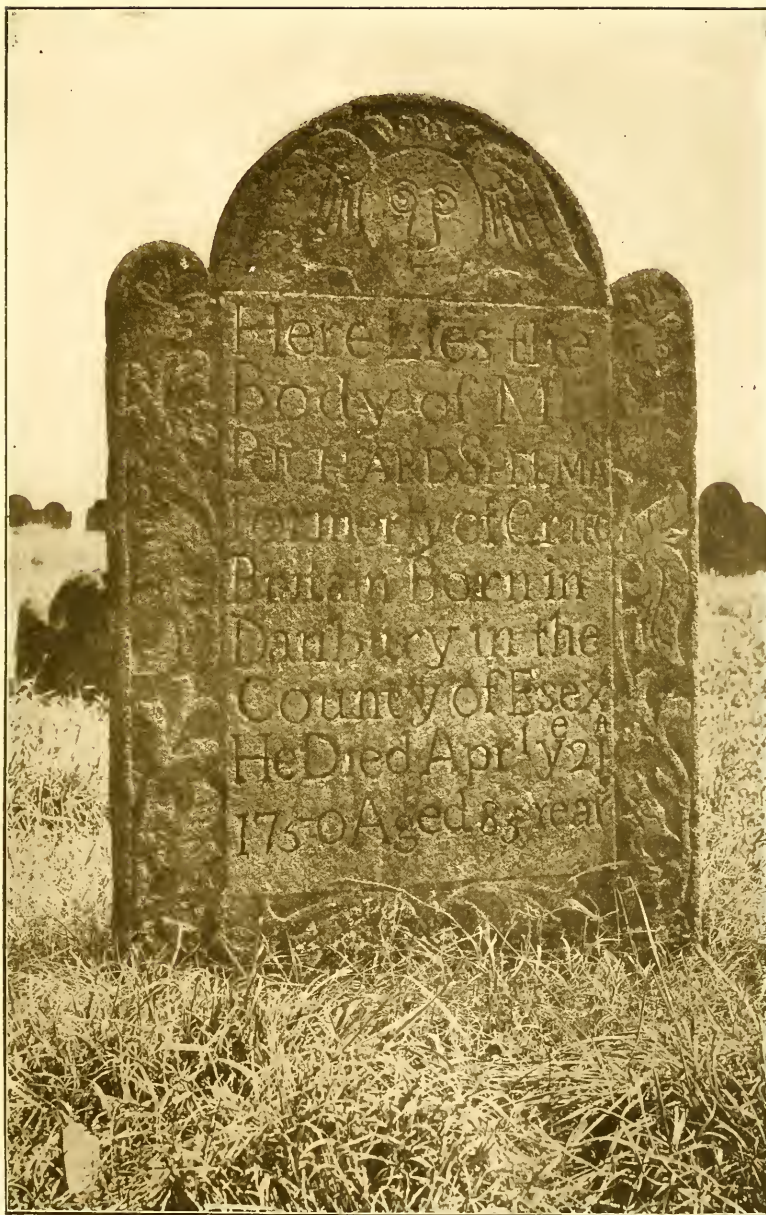 Here Lies the
Body of M
RICHARD
Formerly of Grate
Britain Born in
Danbury in the
County of Esex
He Died Aprˡ yᵉ 21
1750 Aged 85 Year